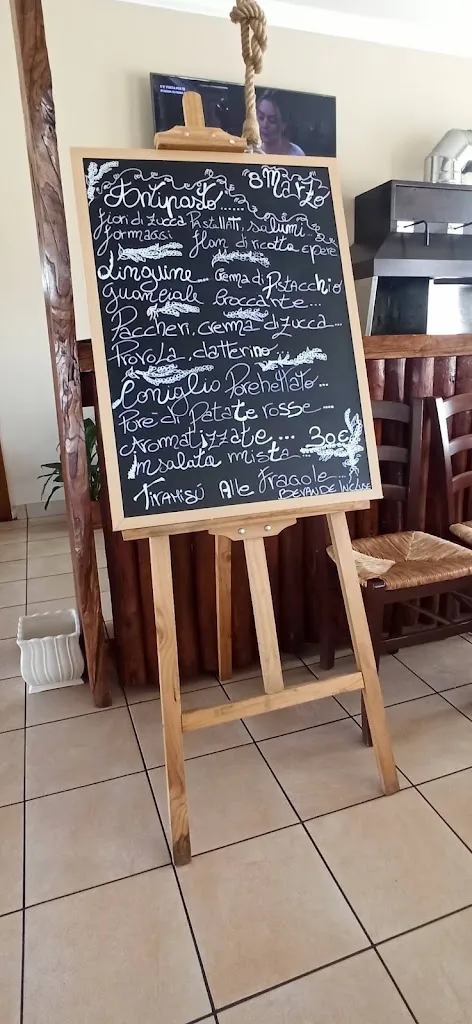 8 Marzo
Antipasto......
fiori di zucca Pistillati, salumi
formaggi flan di ricotta e pere
Linguine... Crema di Pistacchio
Guanciale Croccante...
Paccheri, crema di zucca...
Provola, datterino
Coniglio Porchettato...
Pore di Patate rosse
Aromatizzate... 30€
insalata mista
Tiramisú Alle Fragole
BEVANDE INCLUSE